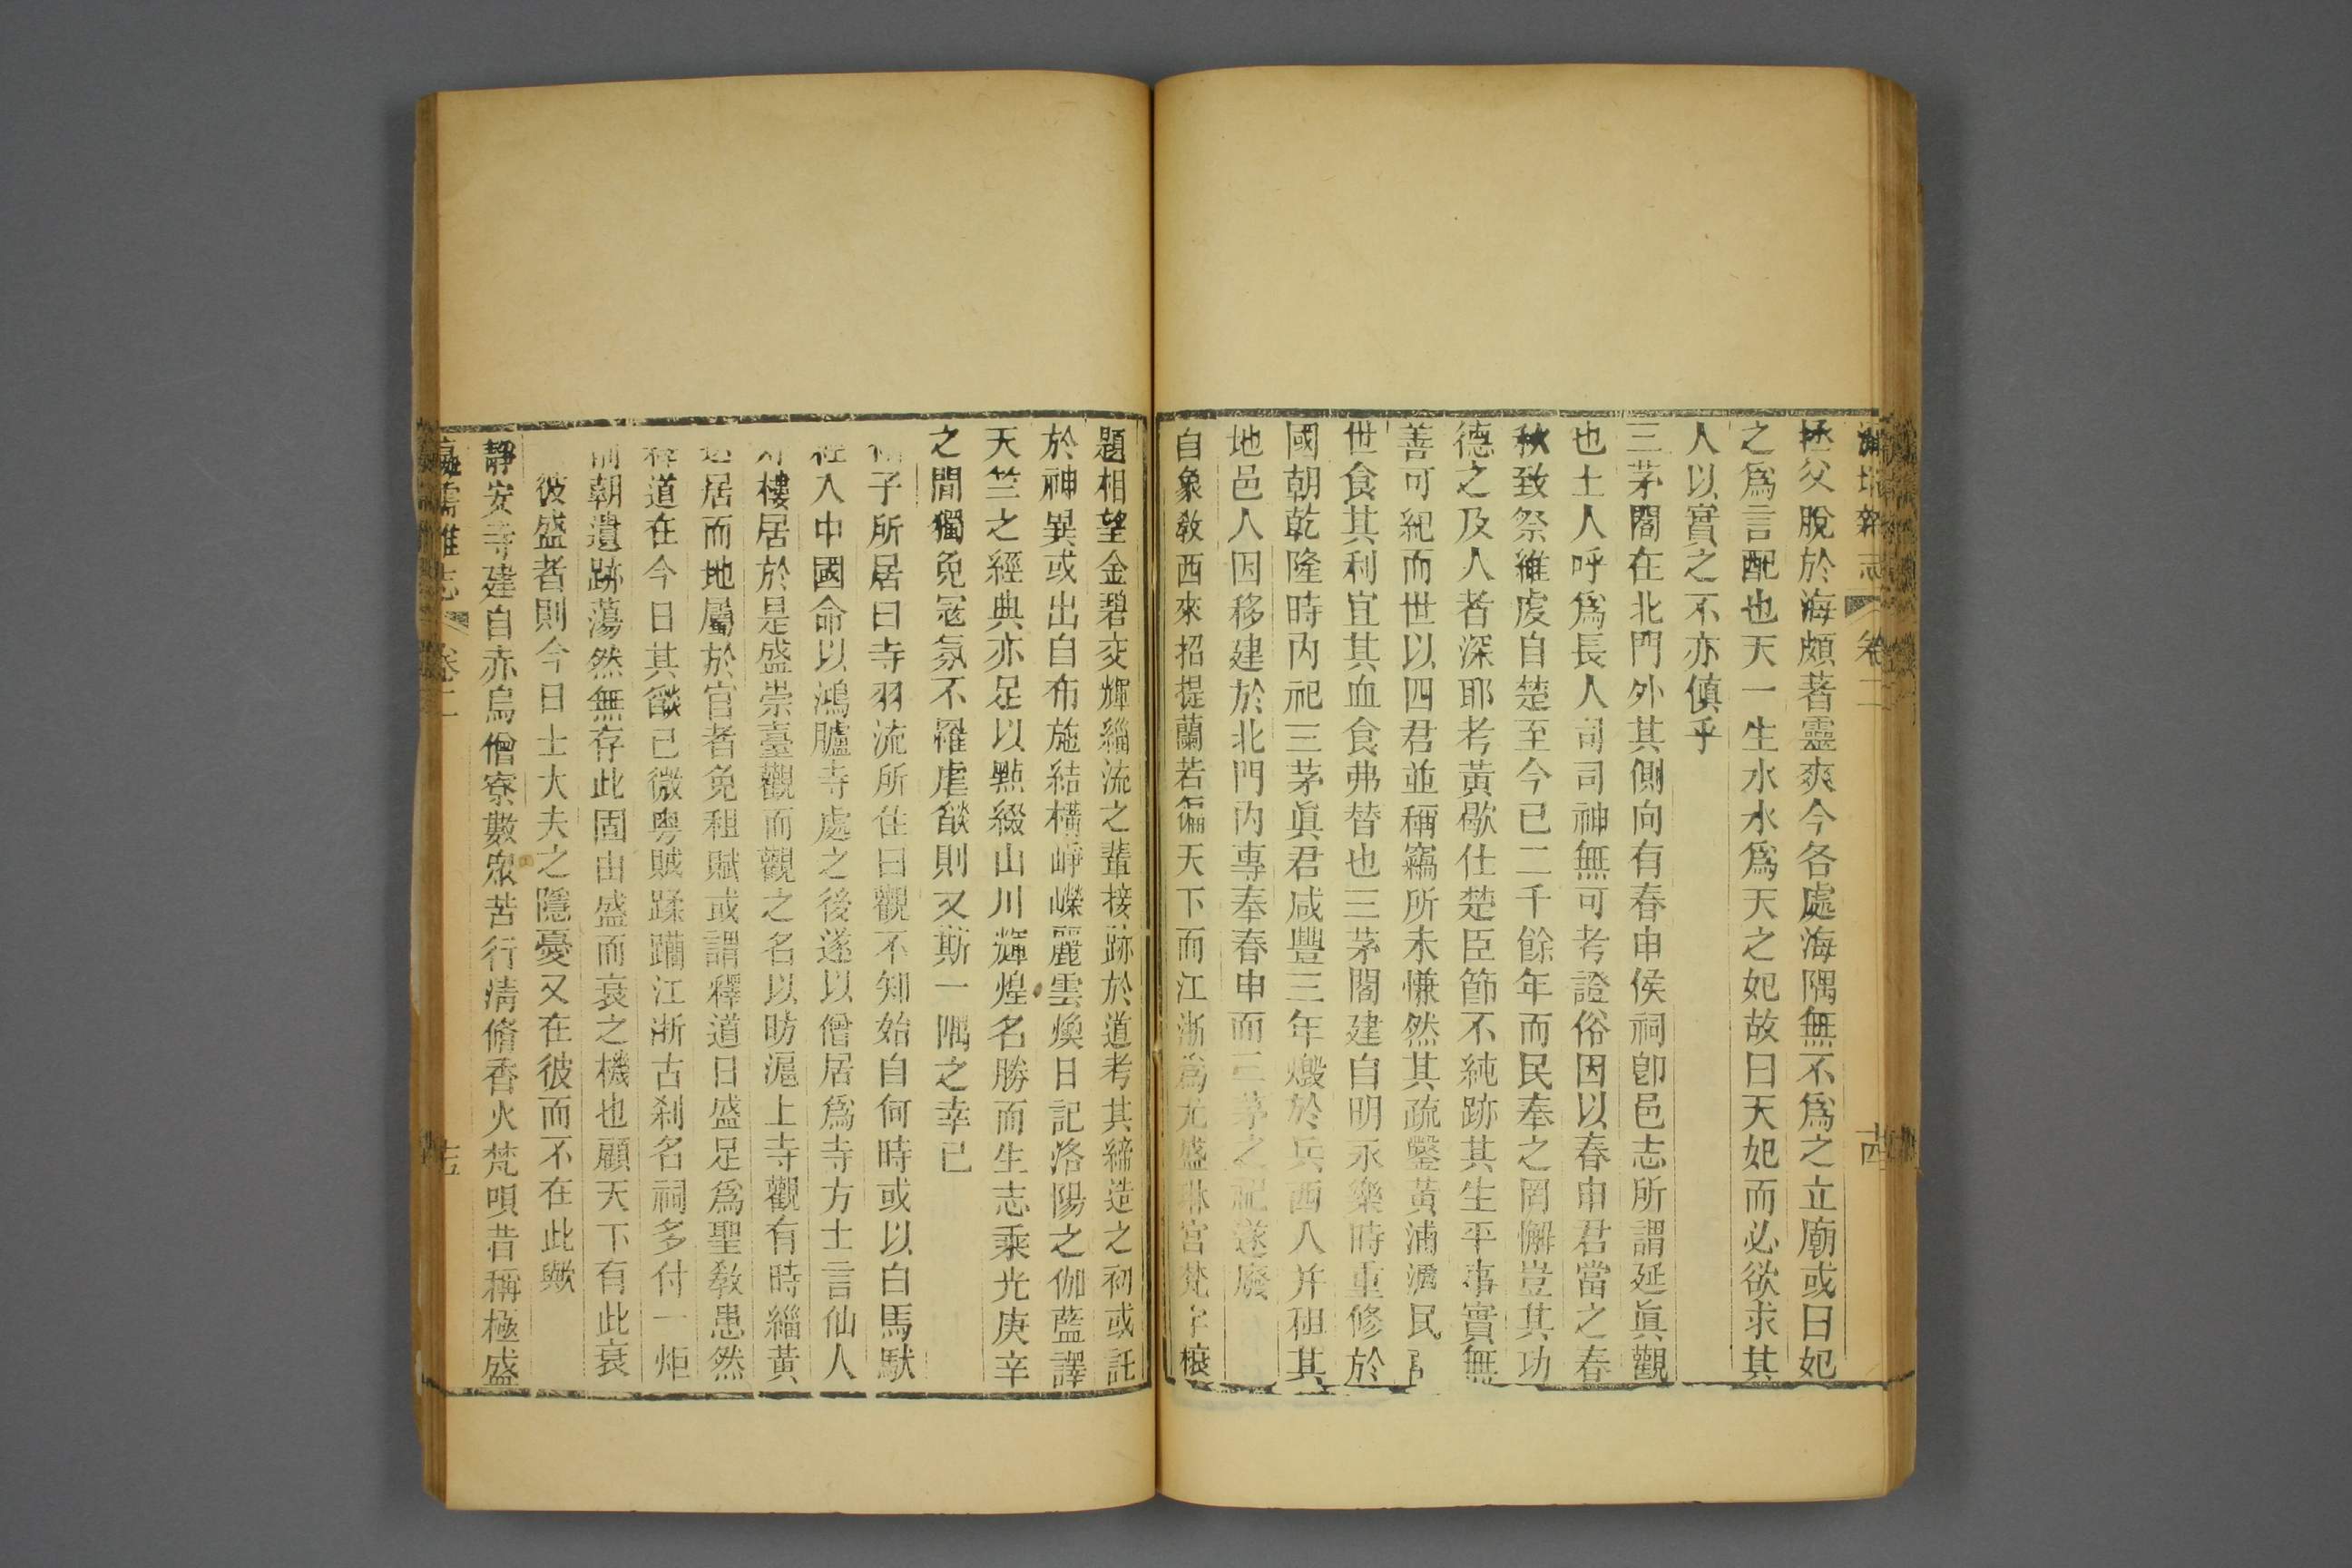 瀛壖雜志 卷二 十四
拯父脫於海頗著靈爽今各處海隅無不爲之立廟或曰妃
之爲言配也天一生水水爲天之妃故曰天妃而必欲求其
人以實之不亦傎乎
三茅閣在北門外其側向有春申侯祠卽邑志所謂延眞觀
也土人呼爲長人司司神無可考證俗因以春申君當之春
秋致祭維虔自楚至今已二千餘年而民奉之罔懈豈其功
德之及人者深耶考黃歇仕楚臣節不純跡其生平事實無
善可紀而世以四君並稱竊所未慊然其疏鑿黃浦漑民
世食其利宜其血食弗替也三茅閣建自明永樂時重修於
國朝乾隆時內祀三茅眞君咸豐三年燬於兵西人并租其
地邑人因移建於北門內專奉春申而三茅之祀遂廢
自象敎西來招提蘭若徧天下而江浙爲尤盛琳宮梵宇榱
題相望金碧交輝緇流之輩接跡於道考其締造之初或託
於神異或出自布施結構崢嶸麗雲煥日記洛陽之伽藍譯
天竺之經典亦足以點綴山川輝煌名勝而生志乘光庚辛
之間獨免冦氛不罹虐燄則又斯一隅之幸已
子所居曰寺羽流所住曰觀不知始自何時或以白馬馱
經入中國命以鴻臚寺處之後遂以僧居爲寺方士言仙人
好樓居於是盛崇臺觀而觀之名以昉滬上寺觀有時緇黃
居而地屬於官者免租賦或謂釋道日盛足爲聖敎患然
釋道在今日其燄已微粵賊蹂躪江浙古刹名祠多付一炬
前朝遺跡蕩然無存此固由盛而衰之機也顧天下有此衰
彼盛者則今日士大夫之隱憂又在彼而不在此歟
靜安寺建自赤烏僧寮數衆苦行淸脩香火梵唄昔稱極盛
瀛壖雜志 卷二